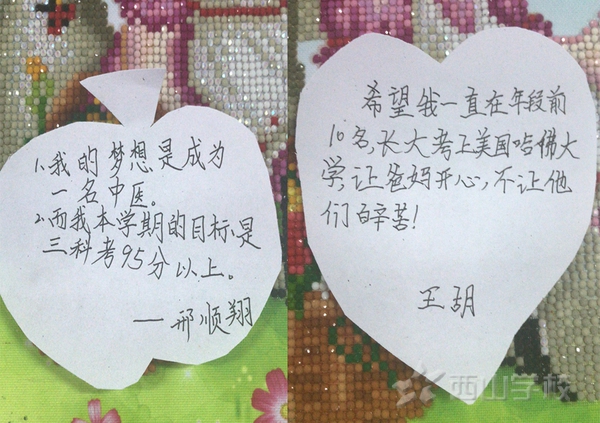 1.我的梦想是成为
一名中医。
2.而我本学期的目标是
三科考95分以上。
——邢顺翔
希望我一直在年段前
10名,长大考上美国哈佛大
学,让爸妈开心,不让他
们辛苦!
王玥
西山学校